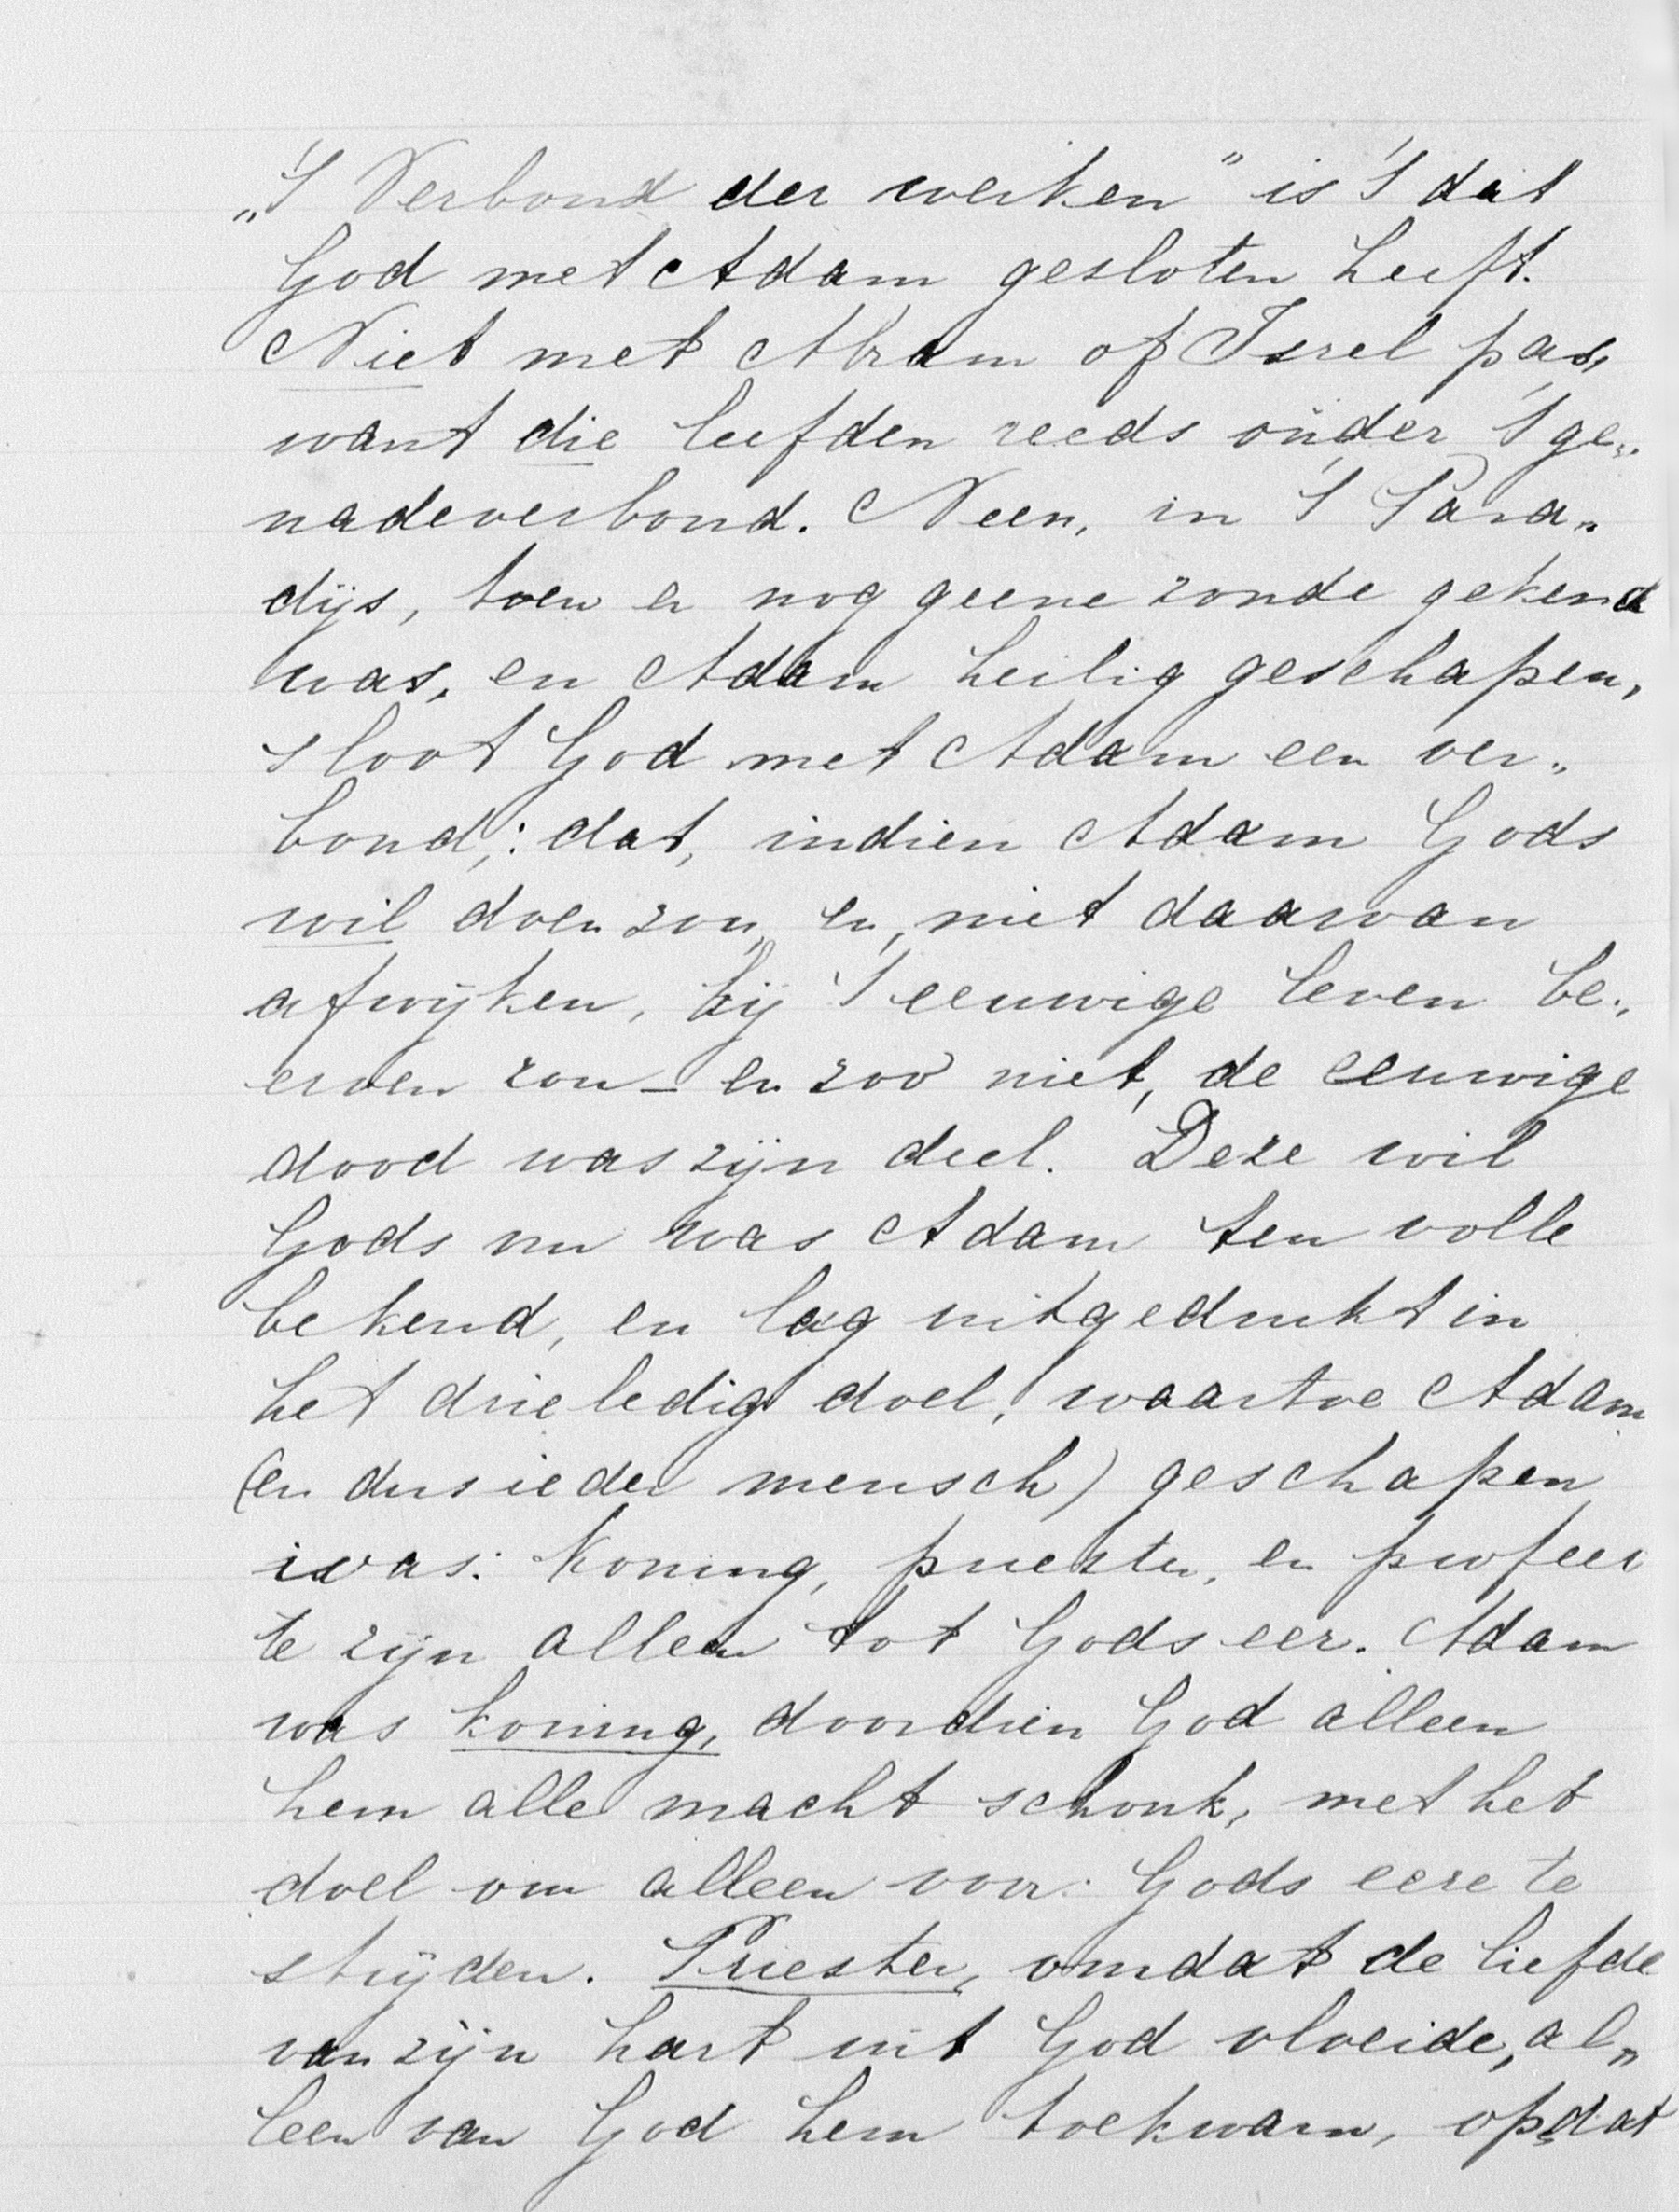 „'t Verbond der werken" is 't dat
God met Adam gesloten heeft.
Niet met Abram of Isrel pas,
want die leefden reeds onder 't ge„
nadeverbond. Neen, in 't Para„
dijs, toen er nog geene zonde gekend
was, en Adam heilig geschapen,
sloot God met Adam een ver„
bond,: dat, indien Adam Gods
wil doen zou, en, niet daarvan
afwijken, hij 't eeuwige leven be„
erven zou – en zoo niet, de eeuwige
dood was zijn deel. Deze wil
Gods nu was Adam ten volle
bekend, en lag uitgedrukt in
het drieledig doel, waartoe Adam
(en dus ieder mensch) geschapen
was: koning, priester, en profeet
te zijn alleen tot Gods eer. Adam
was koning, doordien God alleen
hem alle macht schonk, met het
doel om alleen voor Gods eere te
strijden. Priester, omdat de liefde
van zijn hart uit God vloeide, al„
leen van God hem toekwam, opdat